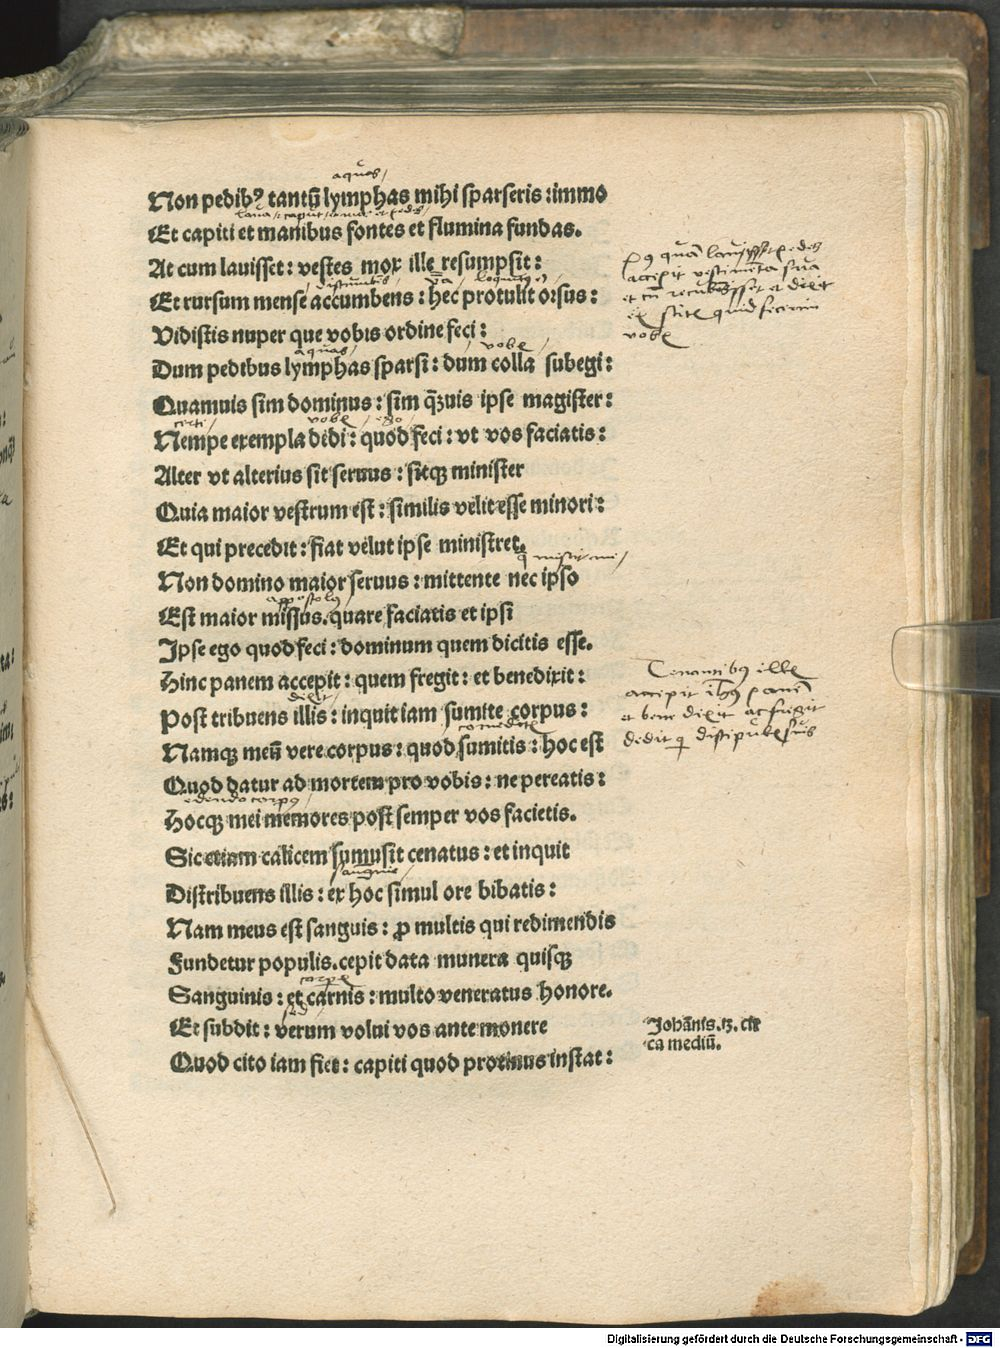 aquas
Non pedibꝰ tantū lymphas mihi sparseris : immo
laua caput manus et pedes
Et capiti et manibus fontes et flumina fundas.
At cum lauisset : vestes mox ille resumpsit :
discumbens
Et rursum mense accumbens : hec protulit orsus :
Vidistis nuper que vobis ordine feci :
aquas vobis
Dum pedibus lymphas sparsi : dum colla subegi :
Quamuis sim dominus : sim q̄zuis ipse magister :
certe vobis ego
Nempe exempla dedi : quod feci : vt vos faciatis :
Alter vt alterius sit seruus : sitqꝫ minister
Quia maior vestrum est : similis velit esse minori :
Et qui precedit : fiat velut ipse ministret.
Non domino maior seruus : mittente nec ipso
appostolus
Est maior missus. quare faciatis et ipsi
Ipse ego quod feci : dominum quem dicitis esse.
Hinc panem accepit : quem fregit : et benedixit :
dixit
Post tribuens illis : inquit iam sumite corpus :
comedite
Namqꝫ meū vere corpus : quod sumitis : hoc est
Quod datur ad mortem pro vobis : ne pereatis :
edendo corpus
Hocqꝫ mei memores post semper vos facietis.
Sic etiam calicem sumusit cenatus : et inquit
sanguis
Distribuens illis : ex hoc simul ore bibatis :
Nam meus est sanguis : ꝓ multis qui redimendis
Fundetur populis. cepit data munera quisqꝫ
Sanguinis : et carnis : multo veneratus honore.
sed
Et subdit : verum volui vos ante monere
Quod cito iam fiet : capiti quod protinus instat :
quā lauisset pedes
accepit vestimēta sua
et cū recubuisset et dixit
scitis quid fecerim
vobis
Cenantibus ille
accepit ihūs panē
et bene dixit ac fregit
dedit qꝫ discipulis suis
Johānis. 13. cir
ca mediū.
Digitalisierung gefördert durch die Deutsche Forschungsgemeinschaft - DFG